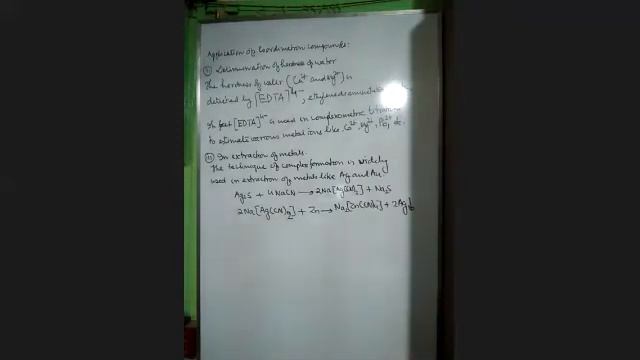 Application of Coordination compounds:
(i) Determination of hardness of water
The hardness of water (Ca²⁺ and Mg²⁺) is
detected by [EDTA]⁴⁻, ethylenediaminetetra
In fact [EDTA]⁴⁻ is used in complexometric titration
to estimate various metal ions like Co²⁺, Mg²⁺, Pb²⁺, etc.
(ii) In extraction of metals.
The technique of complex formation is widely
used in extraction of metals like Ag and Au.
Ag₂S + 4NaCN → 2Na[Ag(CN)₂] + Na₂S
2Na[Ag(CN)₂] + Zn → Na₂[Zn(CN)₄] + 2Ag↓